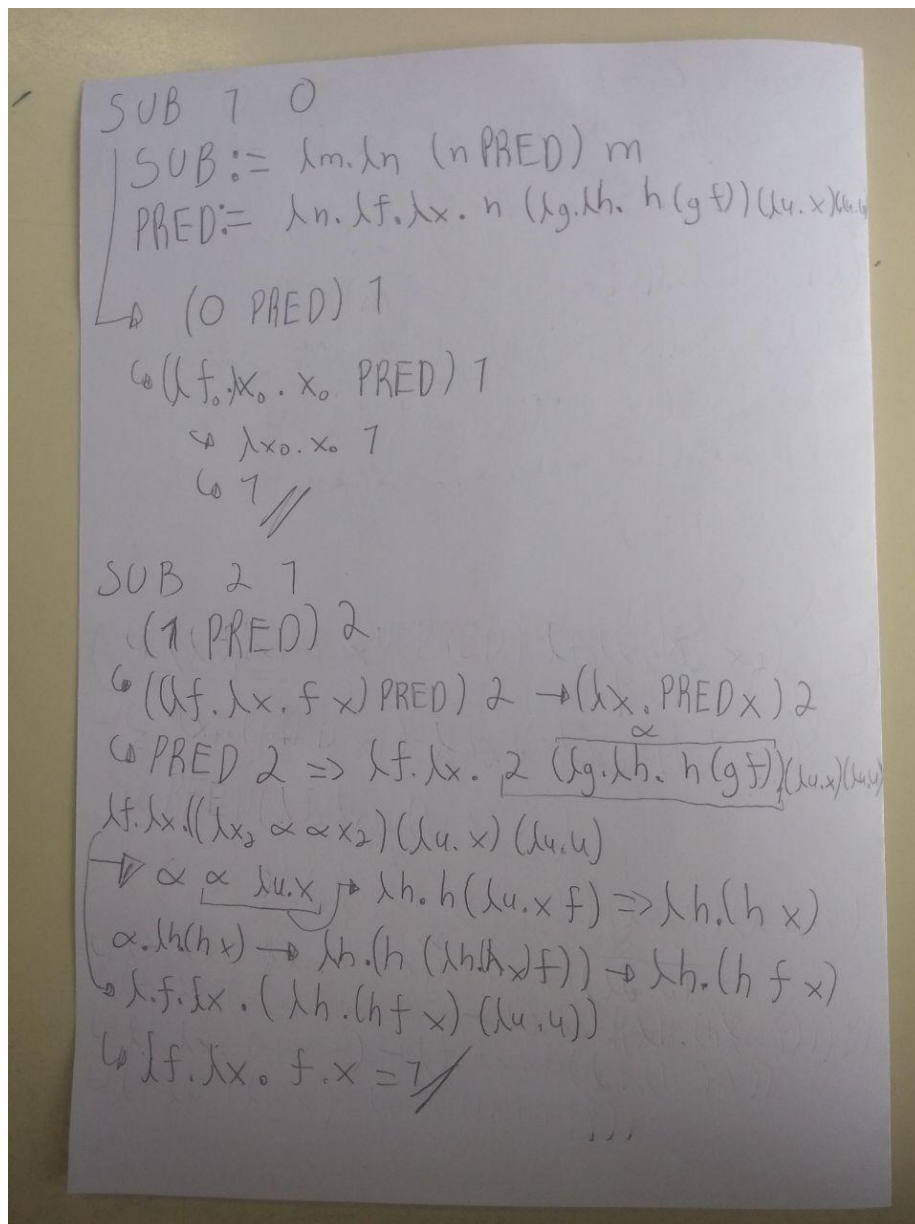 SUB 1 0
SUB := λm.λn (n PRED) m
PRED:= λn.λf.λx. n (λg.λh. h(g f))(λu.x)(λu.u)
(0 PRED) 1
(λf₀.λx₀. x₀ PRED) 1
λx₀.x₀ 1
1
SUB 2 1
(1 PRED) 2
((λf.λx. f x) PRED) 2 → (λx. PRED x) 2
α
PRED 2 => λf.λx. 2 (λg.λh. h(g f))(λu.x)(λu.u)
λf.λx.((λx₂ α α x₂)(λu.x)(λu.u)
α α λu.x → λh.h(λu.x f) => λh.(h x)
α.λh(h x) → λh.(h (λh(h x) f)) → λh.(h f x)
λ.f.λx.(λh.(h f x)(λu.u))
λf.λx. f.x = 1